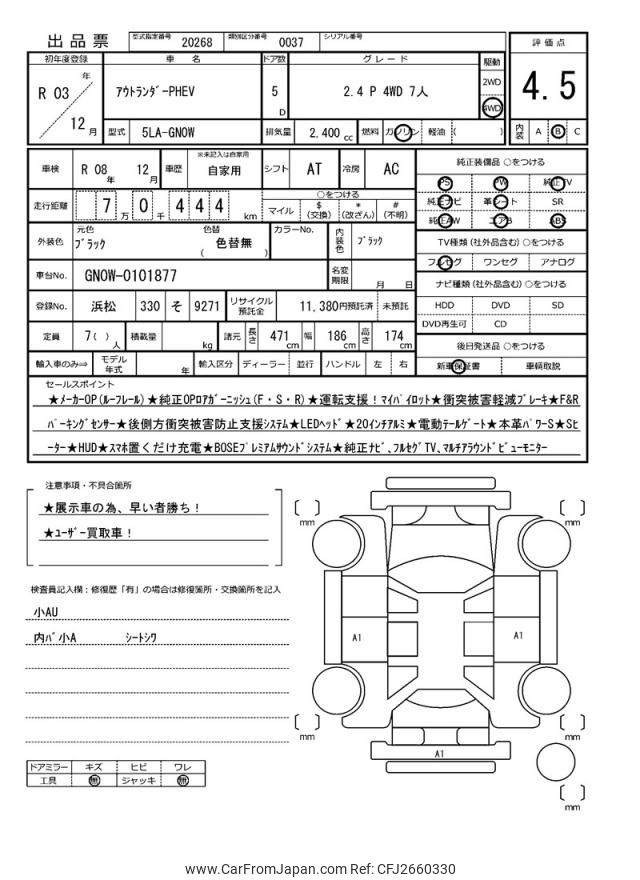 出品票 型式指定番号 20268 類別区分番号 0037 シリアル番号
評価点 4.5
初年度登録 車名 ドア数 グレード 駆動
R 03 年 12 月 アウトランダｰPHEV 5 D 2.4 P 4WD 7人 2WD 4WD
型式 5LA-GN0W 排気量 2,400 cc 燃料 ガソリン 軽油 ( ) 内装 A B C
車検 R 08 年 12 月 車歴 ※未記入は自家用 自家用 シフト AT 冷房 AC
走行距離 7 万 0 千 4 4 4 km
○をつける
マイル $ (交換) * (改ざん) # (不明)
外装色 元色 ブラック 色替 色替無 ( ) カラーNo. 内装色 ブラック
車台No. GN0W-0101877 名変期限 月 日
登録No. 浜松 330 そ 9271 リサイクル預託金 11,380円預託済 未預託
定員 7( ) 人 積載量 kg 諸元 長さ 471 cm 幅 186 cm 高さ 174 cm
輸入車のみ⇒ モデル年式 年 輸入区分 ディーラー 並行 ハンドル 左 右
純正装備品 ○をつける
PS PW 純正TV
純正ナビ 革シート SR
純正AW エアB ABS
TV種類 (社外品含む) ○をつける
フルセグ ワンセグ アナログ
ナビ種類 (社外品含む) ○をつける
HDD DVD SD
DVD再生可 CD
後日発送品 ○をつける
新車保証書 車輌取説
セールスポイント
★メーカーOP(ルーフレール)★純正OPロアガーニッシュ(F・S・R)★運転支援！マイパイロット★衝突被害軽減ブレーキ★F&R
パーキングセンサー★後側方衝突被害防止支援システム★LEDヘッド★20インチアルミ★電動テールゲート★本革パワーS★Sヒ
ーター★HUD★スマホ置くだけ充電★BOSEプレミアムサウンドシステム★純正ナビ、フルセグTV、マルチアラウンドビューモニター
注意事項・不具合箇所
★展示車の為、早い者勝ち！
★ユーザー買取車！
検査員記入欄：修復歴「有」の場合は修復箇所・交換箇所を記入
小AU
内バ小A シートシワ
ドアミラー キズ ヒビ ワレ
工具 無 ジャッキ 無
mm mm
A1 A1
mm mm
A1
mm
www.CarFromJapan.com Ref: CFJ2660330